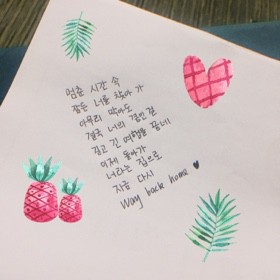 멈춘 시간 속
잠든 너를 찾아 가
아무리 막아도
결국 너의 곁인 걸
길고 긴 여행을 끝내
이제 돌아가
너라는 집으로
지금 다시
Way back home ♥